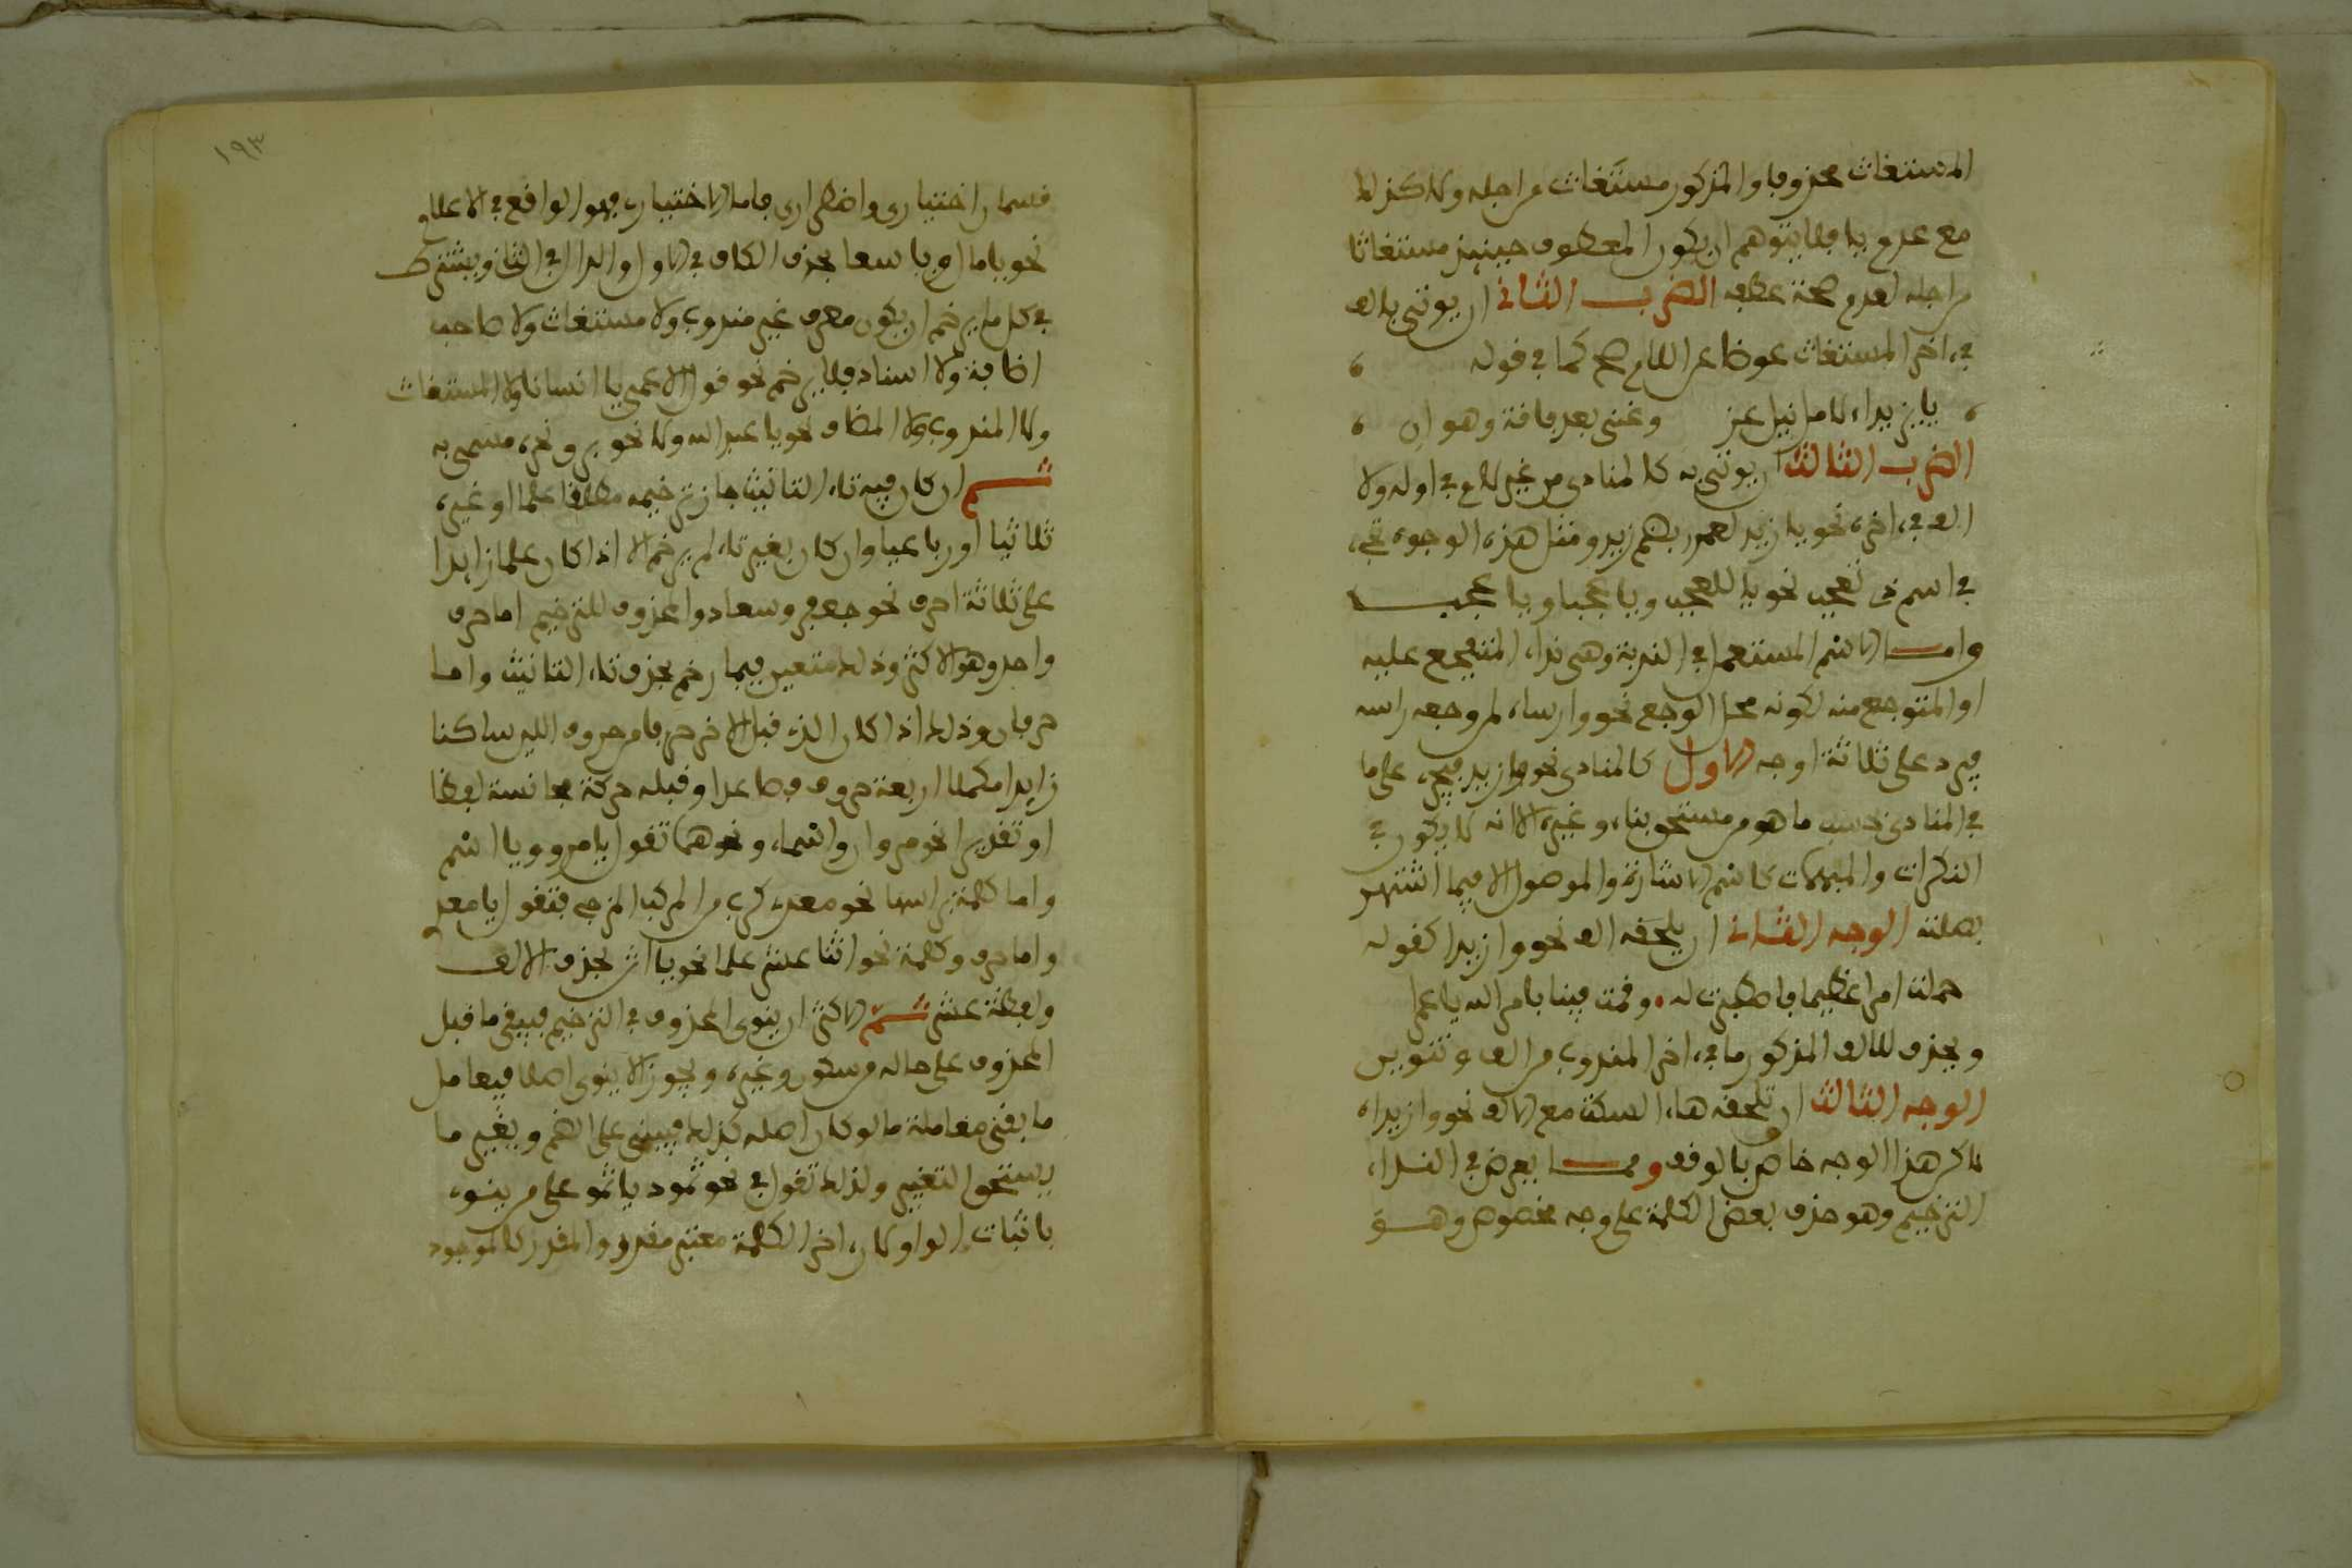 المستغاث محذوفا والمذكور مستغاث من اجله ولا كذلك
مع عدم يا فلا يتوهم ان يكون المعطوف حينئذ مستغاثا
من اجله لعدم صحة عطفه الضرب الثاني ان يوتى بالف
في اخر المستغاث عوضا عن اللام صح كما في قوله
يا يزيدا لامل نيل عز وغنى بعد فاقة وهوان
الضرب الثالث ان يوتى به كالمنادى من غير لام في اوله ولا
الف في اخره نحو يا زيد لعمر بضم زيد ومثل هذه الوجوه تجي
في اسم ذي تعجب نحو يا للعجب ويا عجبا ويا عجب
واما الاسم المستعمل في الندبة وهي نداء المتفجع عليه
او المتوجع منه لكونه محل الوجع نحو وا رساه لمن وجعه راسه
فيرد على ثلاثة اوجه الاول كالمنادى نحو وا زيد فيجي على ما
في المنادى بحسب ما هو من مستحق بناء وغيره الا انه لا يكون في
النكرات والمبهمات كاسم الاشارة والموصول الا فيما اشتهر
بصلته الوجه الثاني ان يلحقه الف نحو وا زيدا كقوله
حملت امرا عظيما فاصطبرت له وقمت فينا بامر الله يا عمرا
ويحذف للالف المذكور ما في اخر المندوب من الف وتنوين
الوجه الثالث ان تلحقه هاء السكت مع الالف نحو وا زيداه
لاكن هذا الوجه خاص بالوقف ومما يعرض في النداء
الترخيم وهو حذف بعض الكلمة على وجه مخصوص وهو
١٩٣
قسمان اختياري واضطراري فاما الاختياري فهو الواقع في الاعلام
نحو يا مال ويا سعا بحذف الكاف في الاول والدال في الثاني ويشترط
في كل ما يرخم ان يكون معرف غير مندوب ولا مستغاث ولا صاحب
اضافة ولا اسناد فلا يرخم نحو قول الاعمى يا انسانا ولا المستغاث
ولا المندوب ولا المضاف نحو يا عبد الله ولا نحو برق نحره مسمى به
ثم ان كان فيه تاء التانيث جاز ترخيمه مطلقا علما او غيره
ثلاثيا او رباعيا وان كان بغير تاء لم يرخم الا اذا كان علما زايدا
على ثلاثة احرف نحو جعفر وسعاد والمحذوف للترخيم اما حرف
واحد وهو الاكثر وذلك متعين فيما رخم بحذف تاء التانيث واما
حرفان وذلك اذا كان الذي قبل الاخر حرفا من حروف اللين ساكنا
زايدا مكملا اربعة حروف فصاعدا وقبله حركة مجانسة لفظا
او تقديرا نحو مروان واسماء ونحوهما تقول يا مرو ويا اسم
واما كلمة براسها نحو معدي كرب من المركب المزجي فتقول يا معد
واما حرف وكلمة نحو اثنا عشر علما نحو يا اثن بحذف الالف
ولفظة عشر ثم الاكثر ان ينوى المحذوف في الترخيم فيبقى ما قبل
المحذوف على حاله من سكون وغيره ويجوز الا ينوى اصلا فيعامل
ما بقي معاملة ما لو كان اصله كذلك فيبنى على الضم ويغير ما
يستحق التغيير ولذلك تقول في نحو ثمود يا ثمو على من ينوي
باثبات الواو لان اخر الكلمة معتبر مقدر والمقدر كالموجود